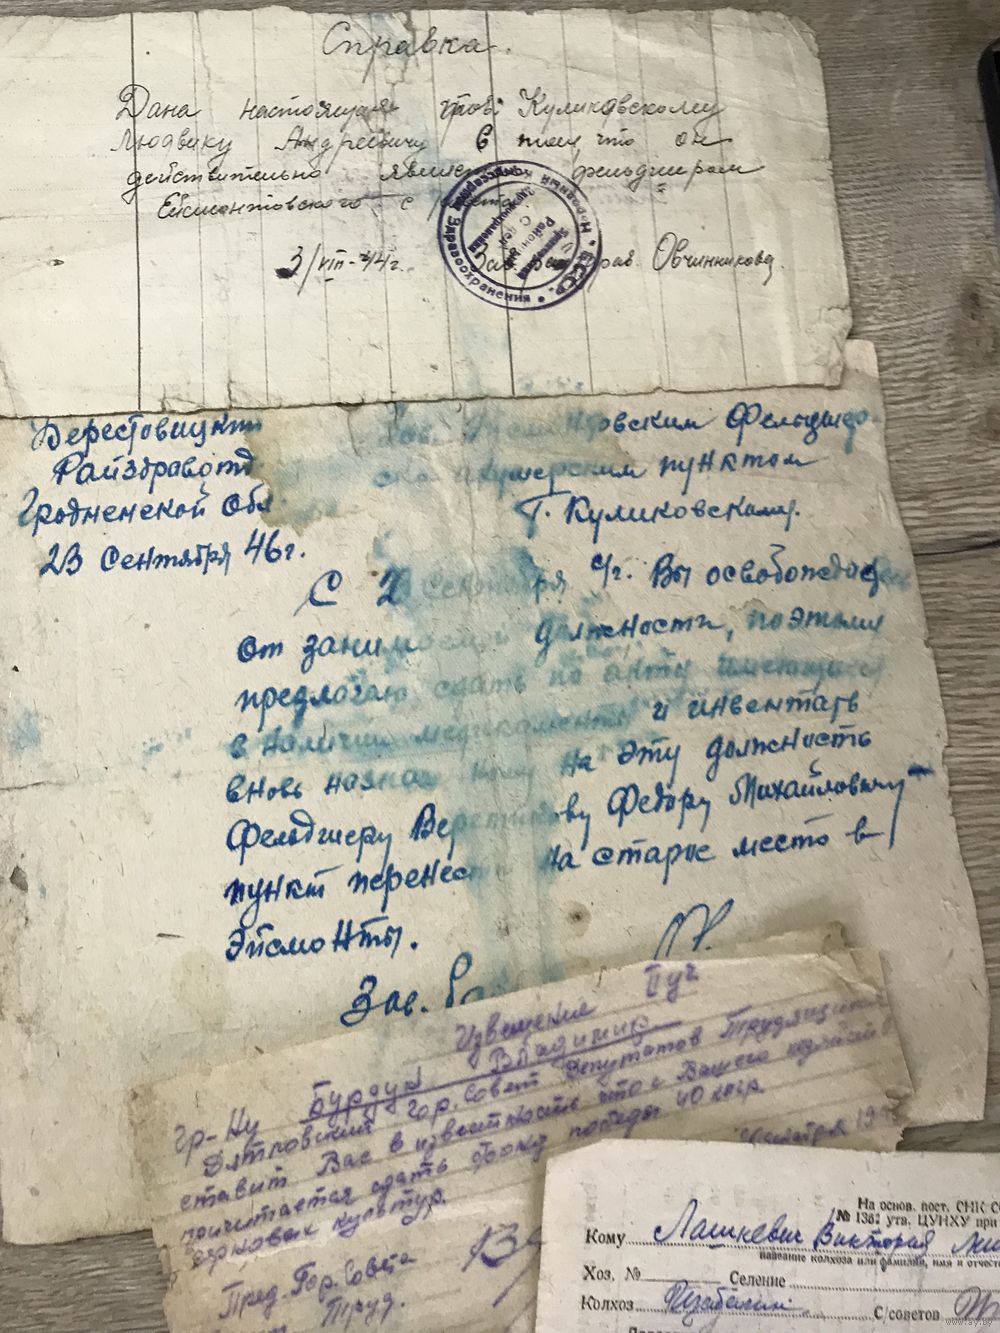 Справка.
Дана настоящая тов. Куликовскому
Людвику Андреевичу в том что он
действительно фельдшером
Ейсмонтовского с
3/VIII-44г. Зав. рав. Овчинникова
Народный Комиссариат Здравоохранения • Б.С.С.Р. •
Берестовицкий
Райздравотд
Гродненской Обл
23 Сентября 46г.
овским Фельдшер
ско акушерским пунктом
Г. Куликовскому.
С 2 Сентября с/г. Вы освобождаетесь
от занимаемой должности, поэтому
предлогаю сдать по акту имеющиеся
в наличии медикаменты и инвентарь
вновь назначенному на эту должность
Фельдшеру Федору Михайловичу
пункт перенести на старое место в
Эйсмонты.
Зав.
Извещение
Гр-ну Бурдук Владимир
Дятловский Гор. Совет Депутатов Трудящихся
ставит Вас в известность что с Вашего хозяйства
причитается сдать Фонд победы 40 клгр.
зерновых культур.
19
Пред. Гор. Совета
Труд.
На основ. пост. СНК С
№ 1361 утв. ЦУНХУ при
Кому Лашкевич Виктория
название колхоза или фамилия, имя и отчест
Хоз. № Селение
Колхоз С/советов
www.ay.by